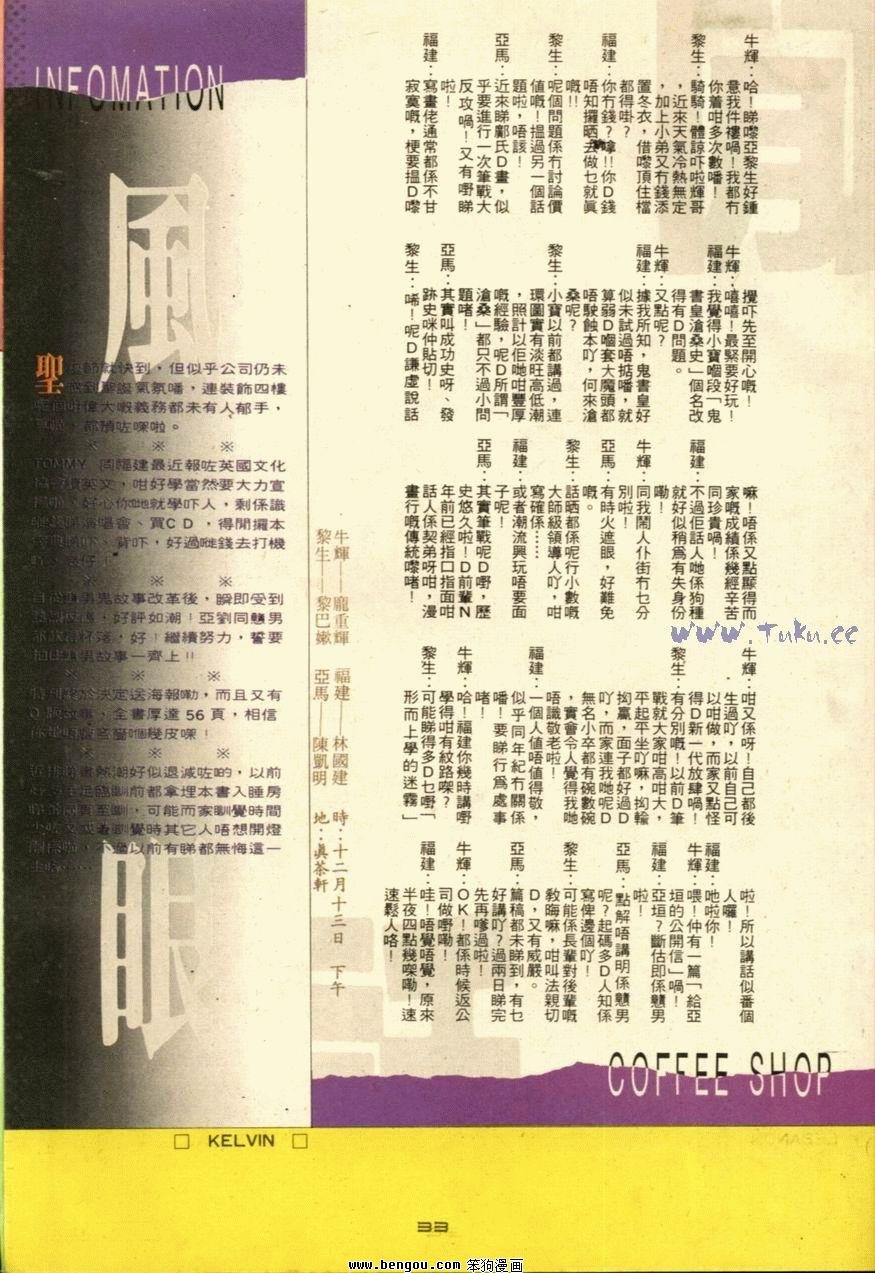 INFOMATION
風眼
聖
節就快到，但似乎公司仍未
到聖誕氣氛噃，連裝飾四樓
偉大嘅義務都未有人郁手，
都預咗㗎啦。
※　※　※
TOMMY 同福建最近報咗英國文化
英文，咁好學當然要大力宣
好心你哋就學吓人，剩係識
演唱會、買CD，得閒攞本
背吓，好過嘥錢去打機
※　※　※
男鬼故事改革後，瞬即受到
好評如潮！亞劉同戇男
好！繼續努力，誓要
男故事一齊上!!
※　※　※
於決定送海報嘞，而且又有
全書厚達56頁，相信
※　※　※
熱潮好似退減咗啲，以前
臨瞓前都拿埋本書入睡房
至瞓，可能而家瞓覺時間
瞓覺時其它人唔想開燈
不過以前有睇都無悔這一
□ KELVIN □
牛輝：哈！睇嚟亞黎生好鍾
意我件褸喎！我都冇
你着咁多次數噃！
黎生：騎騎！體諒吓啦輝哥
，近來天氣冷熱無定
，加上小弟又冇錢添
置冬衣，借嚟頂住檔
都得啩？
福建：你冇錢？嗱!!你D錢
唔知攞晒去做乜就眞
嘅!!
黎生：呢個問題係冇討論價
値嘅！搵過另一個話
題啦，唔該！
亞馬：近來睇鄺氏D畫，似
乎要進行一次筆戰大
反攻喎！又有嘢睇
啦！
福建：寫畫佬通常都係不甘
寂寞嘅，梗要搵D嚟
攪吓先至開心嘅！
牛輝：嘻嘻！最緊要好玩！
福建：我覺得小寶嗰段「鬼
書皇滄桑史」個名改
得有D問題。
牛輝：又點呢？
福建：據我所知，鬼書皇好
似未試過唔掂噃，就
算弱D嗰套大魔頭都
唔駛蝕本吖，何來滄
桑呢？
黎生：小寶以前都講過，連
環圖實有淡旺高低潮
，照計以佢哋咁豐厚
嘅經驗，呢D所謂「
滄桑」都只不過小問
題啫！
亞馬：其實叫成功史呀、發
跡史咪仲貼切！
黎生：唏！呢D謙虛說話
嘛！唔係又點顯得而
家嘅成績係幾經辛苦
同珍貴喎！
福建：不過佢話人哋係狗種
就好似稍爲有失身份
嘞！
牛輝：同我鬧人仆街冇乜分
別啦！
亞馬：有時火遮眼，好難免
嘅。
黎生：話晒都係呢行小數嘅
大師級領導人吖，咁
寫確係……
福建：或者潮流興玩唔要面
子呢！
亞馬：其實筆戰呢D嘢，歷
史悠久啦！D前輩N
年前已經指口指面咁
話人係契弟呀咁，漫
畫行嘅傳統嚟啫！
牛輝：咁又係呀！自己都後
生過吖，以前自己可
以咁做，而家又點怪
得D新一代放肆喎！
黎生：有分別嘅！以前D筆
戰就大家咁高咁大，
平起平坐吖嘛，抝輸
抝贏，面子都好過D
吖，而家連我哋呢D
無名小卒都有碗數碗
，實會令人覺得我哋
唔識敬老啦！
福建：一個人値唔値得敬，
似乎同年紀冇關係
噃！要睇行爲處事
啫！
牛輝：哈！福建你幾時講嘢
學得咁有紋路㗎？
黎生：可能睇得多D乜嘢「
形而上學的迷霧」
啦！所以講話似番個
人囉！
福建：吔啦你！
牛輝：喂！仲有一篇「給亞
垣的公開信」喎！
福建：亞垣？斷估即係戇男
啦！
亞馬：點解唔講明係戇男
呢？起碼多D人知係
寫俾邊個吖！
黎生：可能係長輩對後輩嘅
敎晦嘛，咁叫法親切
D，又有威嚴。
亞馬：篇稿都未睇到，有乜
好講吖？過兩日睇完
先再嗲過啦！
牛輝：OK！都係時候返公
司做嘢嘞！
福建：哇！唔覺唔覺，原來
半夜四點幾㗎嘞！速
速鬆人咯！
牛輝——龐重輝　福建——林國建
黎生——黎巴嫩　亞馬——陳凱明
時：十二月十三日　下午
地：眞茶軒
COFFEE SHOP
www.Tuku.cc
33
www.bengou.com 笨狗漫画